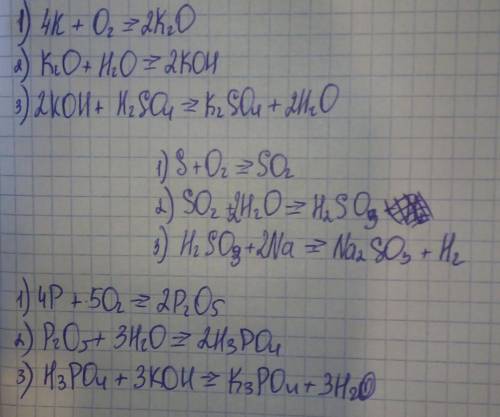 1) 4K + O₂ = 2K₂O
2) K₂O + H₂O = 2KOH
3) 2KOH + H₂SO₄ = K₂SO₄ + 2H₂O
1) S + O₂ = SO₂
2) SO₂ + 2H₂O = H₂SO₃
3) H₂SO₃ + 2Na = Na₂SO₃ + H₂
1) 4P + 5O₂ = 2P₂O₅
2) P₂O₅ + 3H₂O = 2H₃PO₄
3) H₃PO₄ + 3KOH = K₃PO₄ + 3H₂O